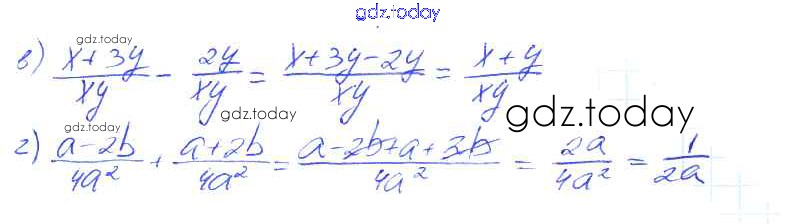 gdz.today
в) (x + 3y)/(xy) − 2y/(xy) = (x + 3y − 2y)/(xy) = (x + y)/(xy)
gdz.today
gdz.today
gdz.today
gdz.today
г) (a − 2b)/(4a²) + (a + 2b)/(4a²) = (a − 2b + a + 2b)/(4a²) = 2a/(4a²) = 1/(2a)